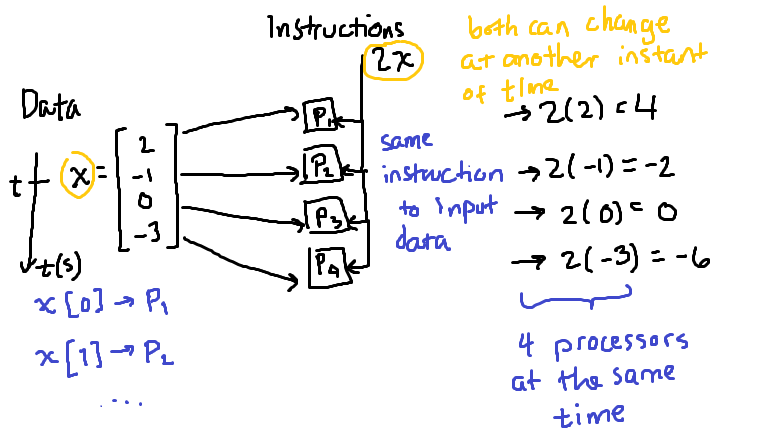 Instructions
2x
both can change
at another instant
of time
Data
t
x = [2 -1 0 -3]
t(s)
P1
P2
P3
P4
same
instruction
to input
data
→ 2(2) = 4
→ 2(-1) = -2
→ 2(0) = 0
→ 2(-3) = -6
x[0] → P1
x[1] → P2
...
4 processors
at the same
time